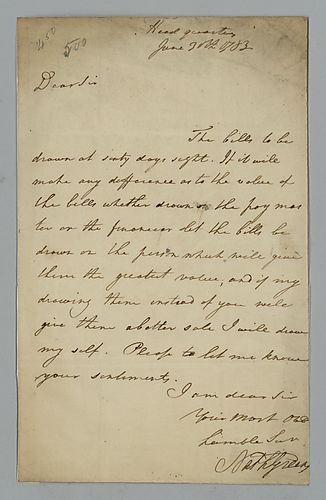 450
500
Head quarters
June 30th 1783
Dear Sir
The bills to be
drawn at sixty days sight. If it will
make any difference as to the value of
the bills whether drawn on the pay mas
ter or the financeer let the bills be
drawn on the person which will give
them the greatest value, and if my
drawing them instead of you will
give them a better sale I will draw
my self. Please to let me know
your sentiments.
I am dear Sir
Your most Obd
humble Ser
Nath Greene